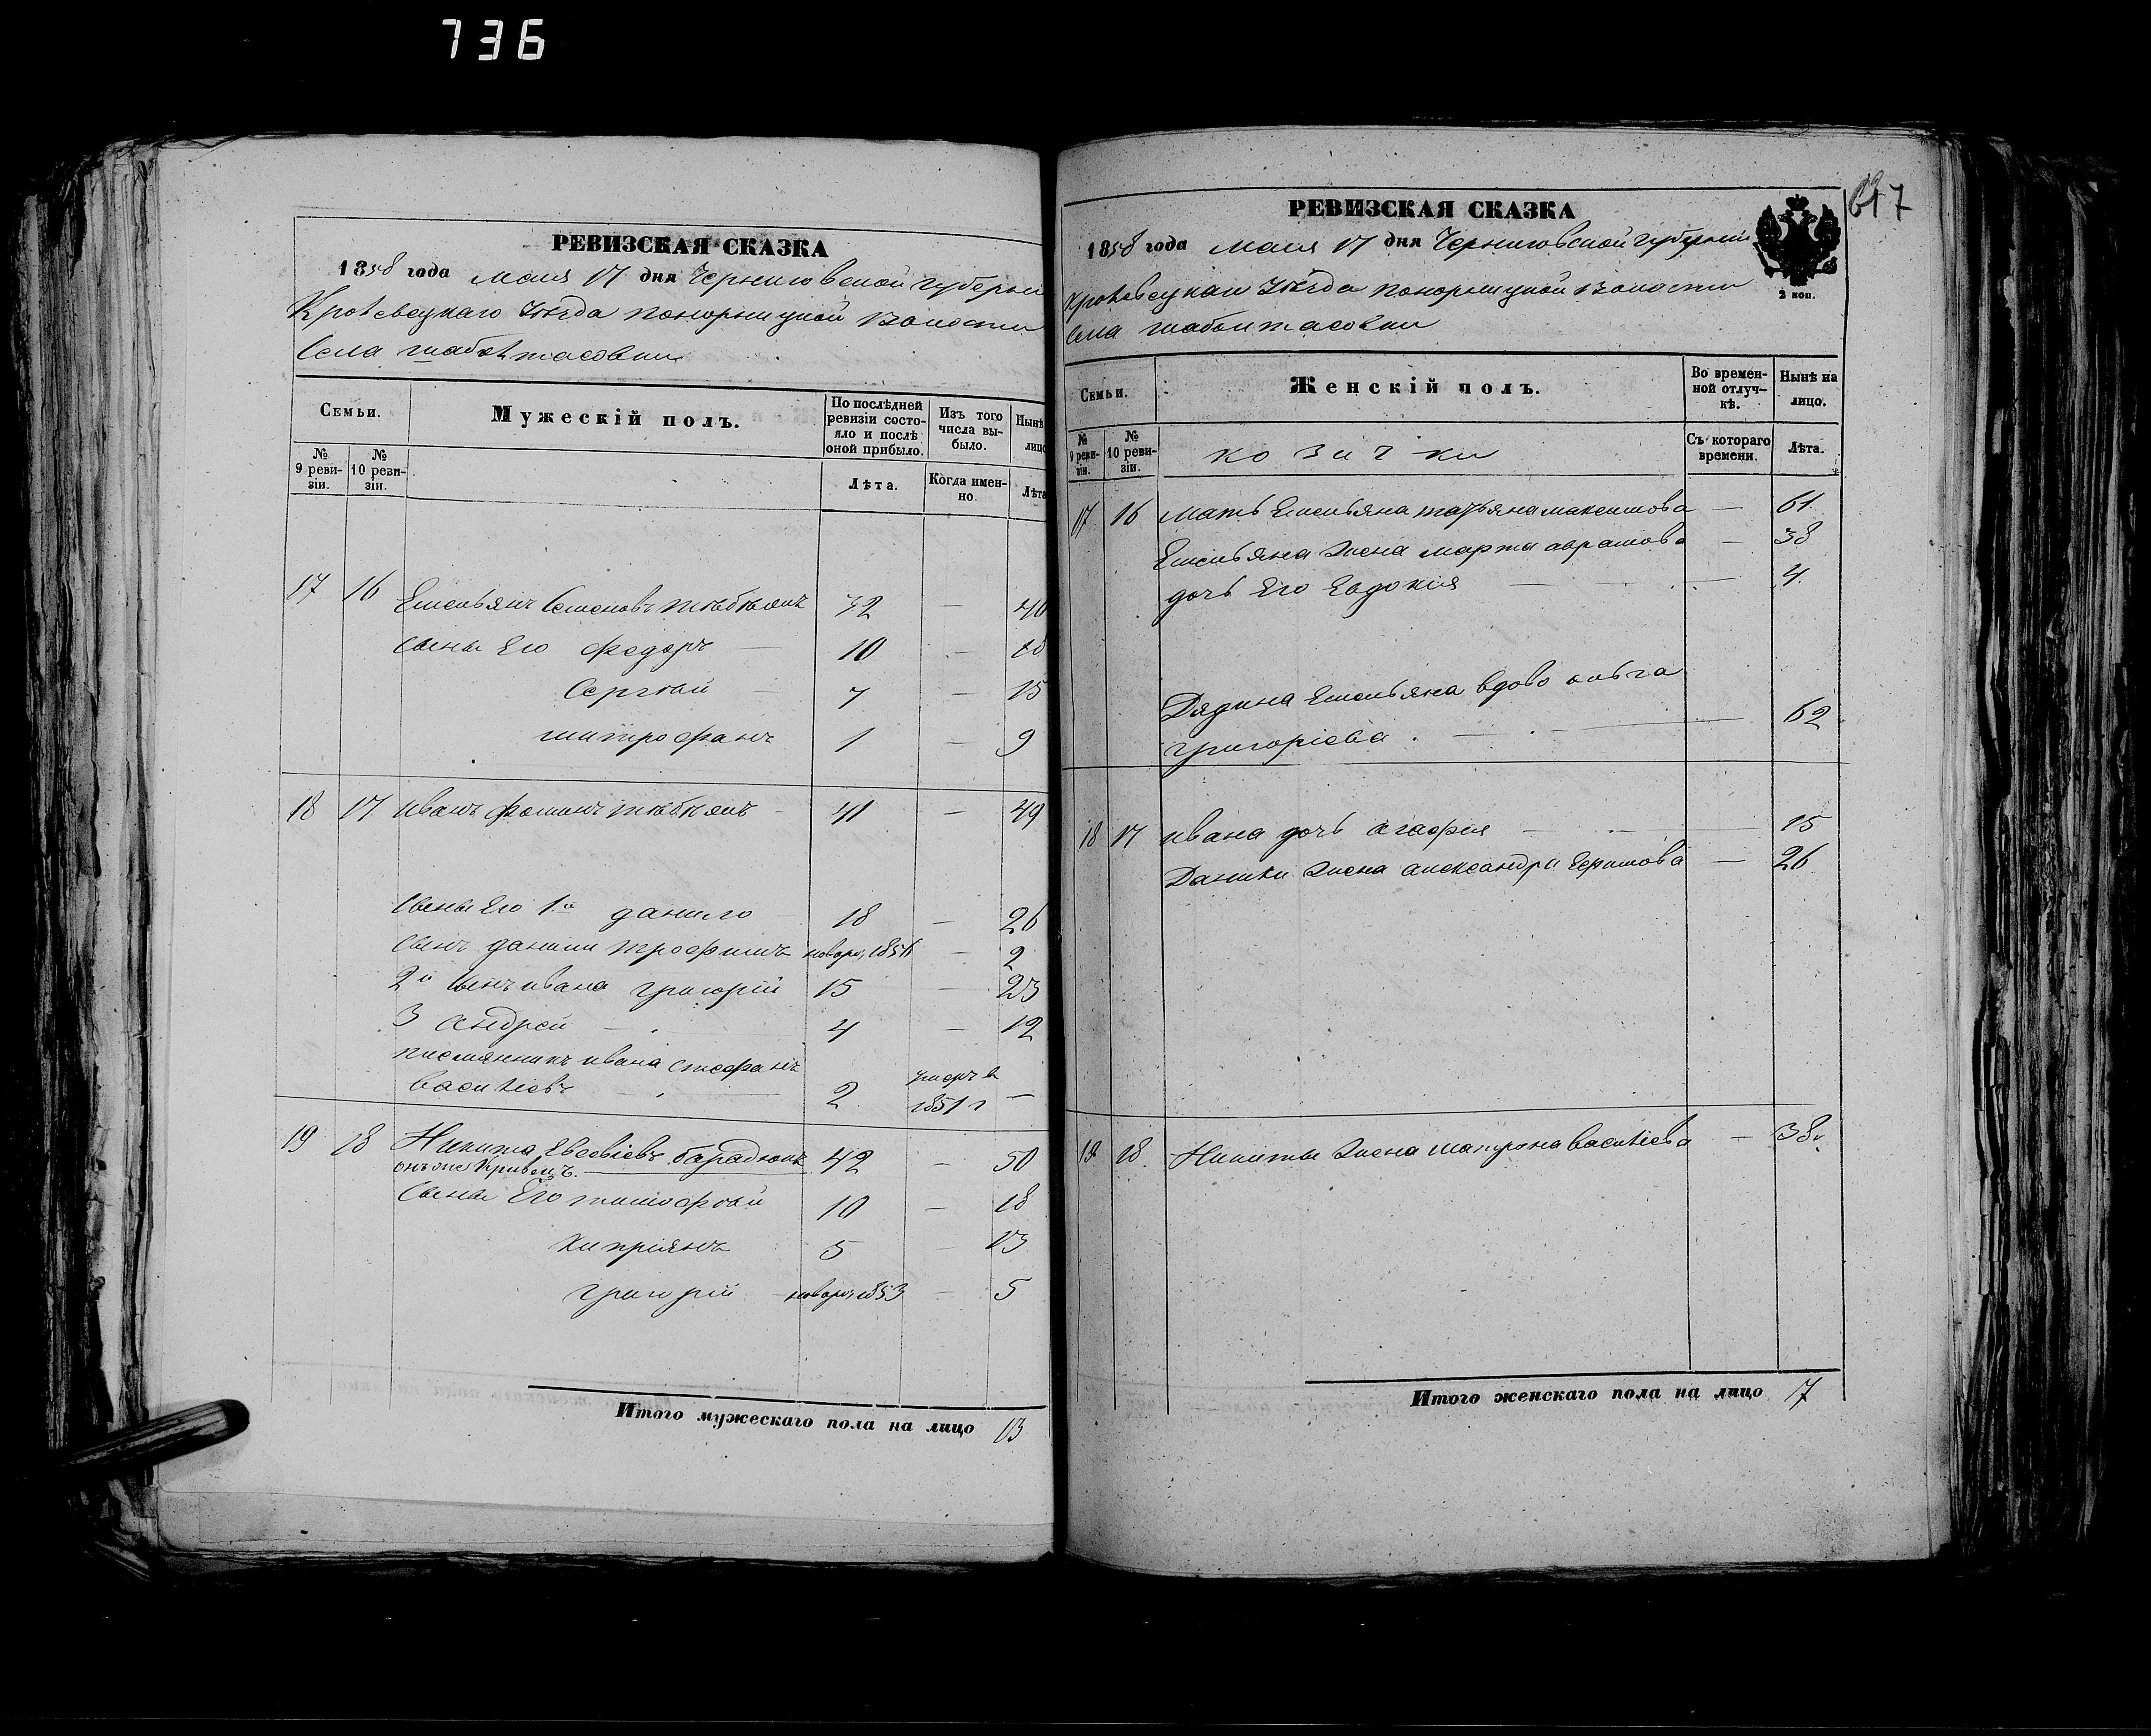 736
РЕВИЗСКАЯ СКАЗКА
1858 года Маия 17 дня Черниговской губерніи
Кролевецкаго Уѣзда Понорницкой Волости
Села
Семьи.
Мужескій полъ.
По послѣдней ревизіи состояло и послѣ оной прибыло.
Изъ того числа выбыло.
Нынѣ
лицо
№ 9 ревизіи.
№ 10 ревизіи.
Лѣта.
Когда именно.
Лѣта
17 16 Емельянъ Семеновъ 32 — 40
сыны Его Федоръ — 10 — 18
Сергѣй — 7 — 15
митрофанъ 1 — 9
18 17 иванъ Фоминъ — 41 — 49
сыны Его 1й данило 18 — 26
сынъ данилы трофимъ новоро, 1856 — 2
2й сынъ ивана григорій 15 — 23
3 андрей — 4 — 12
племянникъ ивана стефанъ
василіевъ — 2 умеръ в 1851 г —
19 18 Никита Евсевіевъ 42 — 50
онъ же Кривецъ.
сыны Его тимофѣй 10 — 18
кипріянъ 5 — 13
григорій — новоро, 1853 — 5
Итого мужескаго пола на лицо 13
647
РЕВИЗСКАЯ СКАЗКА
1858 года маия 17 дня Черниговской губерніи
2 коп.
Кролевецкаго Уѣзда Понорницкой Волости
Села
Семьи.
Женскій полъ.
Во временной отлучкѣ.
Нынѣ на лицо.
№ 9 ревизіи.
№ 10 ревизіи.
козачки
Съ котораго времени.
Лѣта.
17 16 мать Емельяна татьяна максимова — 61
Емельяна жена марта аврамова — 38
дочь Его Евдокія — 4
Дядина Емельяна вдова ольга
григоріева — 62
18 17 ивана дочь агафия — 15
Данилы жена александра Ефимова — 26
19 18. Никиты жена матрона василіева — 38
Итого женскаго пола на лицо 7